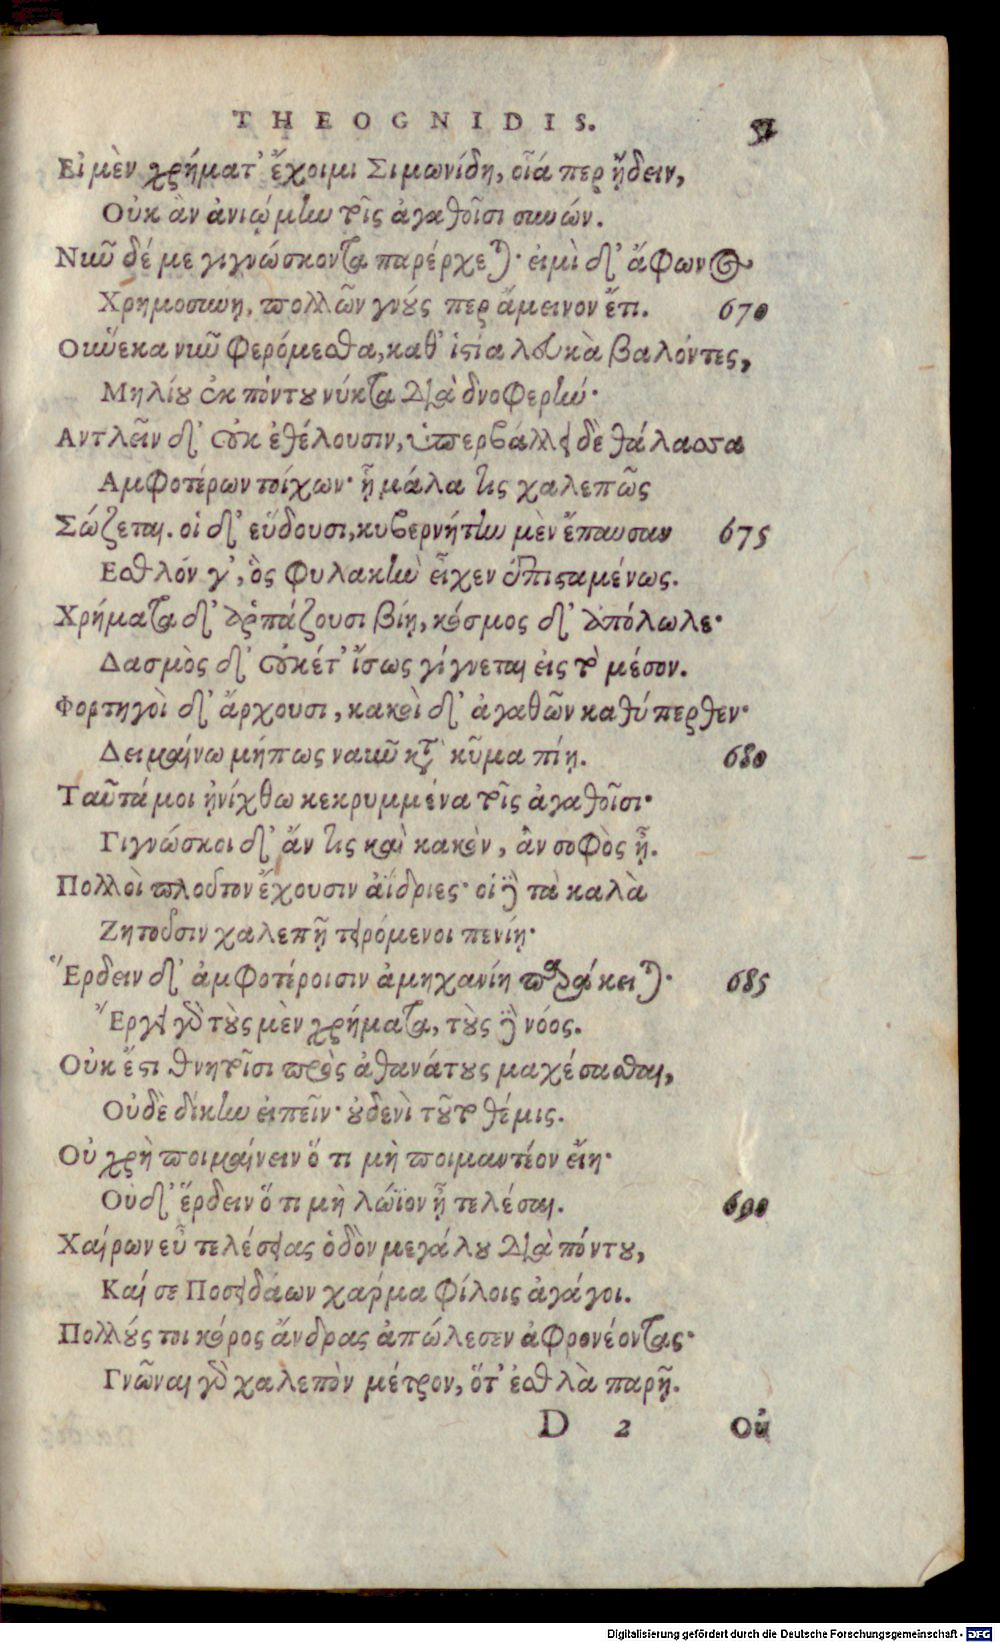 THEOGNIDIS. 51
Εἰ μὲν χρήματ' ἔχοιμι Σιμωνίδη, οἷά περ ᾔδειν,
Οὐκ ἂν ἀνιῴμην τοῖς ἀγαθοῖσι συνών.
Νῦν δέ με γιγνώσκοντα παρέρχεται· εἰμὶ δ' ἄφωνος
Χρημοσύνῃ, πολλῶν γνούς περ ἄμεινον ἔτι. 670
Οὕνεκα νῦν φερόμεσθα, καθ' ἱστία λευκὰ βαλόντες,
Μηλίου ἐκ πόντου νύκτα διὰ δνοφερήν·
Αντλεῖν δ' οὐκ ἐθέλουσιν, ὑπερβάλλει δὲ θάλασσα
Αμφοτέρων τοίχων· ἦ μάλα τις χαλεπῶς
Σώζεται. οἱ δ' εὕδουσι, κυβερνήτην μὲν ἔπαυσαν 675
Εσθλόν γ', ὃς φυλακὴν εἶχεν ἐπισταμένως.
Χρήματα δ' ἁρπάζουσι βίῃ, κόσμος δ' ἀπόλωλε·
Δασμὸς δ' οὐκέτ' ἴσως γίγνεται εἰς τὸ μέσον.
Φορτηγοὶ δ' ἄρχουσι, κακοὶ δ' ἀγαθῶν καθύπερθεν·
Δειμαίνω μήπως ναῦν κατὰ κῦμα πίῃ. 680
Ταῦτά μοι ᾐνίχθω κεκρυμμένα τοῖς ἀγαθοῖσι·
Γιγνώσκοι δ' ἄν τις καὶ κακὸν, ἂν σοφὸς ᾖ.
Πολλοὶ πλοῦτον ἔχουσιν ἀΐδριες· οἱ δὲ τὰ καλὰ
Ζητοῦσιν χαλεπῇ τειρόμενοι πενίῃ·
Ἕρδειν δ' ἀμφοτέροισιν ἀμηχανίη παράκειται· 685
Ἔργει γὰρ τοὺς μὲν χρήματα, τοὺς δὲ νόος.
Οὐκ ἔστι θνητοῖσι πρὸς ἀθανάτους μαχέσασθαι,
Οὐδὲ δίκην εἰπεῖν· οὐδενὶ τοῦτο θέμις.
Οὐ χρὴ ποιμαίνειν ὅ τι μὴ ποιμαντέον εἴη·
Οὐδ' ἕρδειν ὅ τι μὴ λώϊον ᾖ τελέσαι. 690
Χαίρων εὖ τελέσειας ὁδὸν μεγάλου διὰ πόντου,
Καί σε Ποσειδάων χάρμα φίλοις ἀγάγοι.
Πολλούς τοι κόρος ἄνδρας ἀπώλεσεν ἀφρονέοντας·
Γνῶναι γὰρ χαλεπὸν μέτρον, ὅτ' ἐσθλὰ παρῇ.
D 2 Οὐ
Digitalisierung gefördert durch die Deutsche Forschungsgemeinschaft - DFG